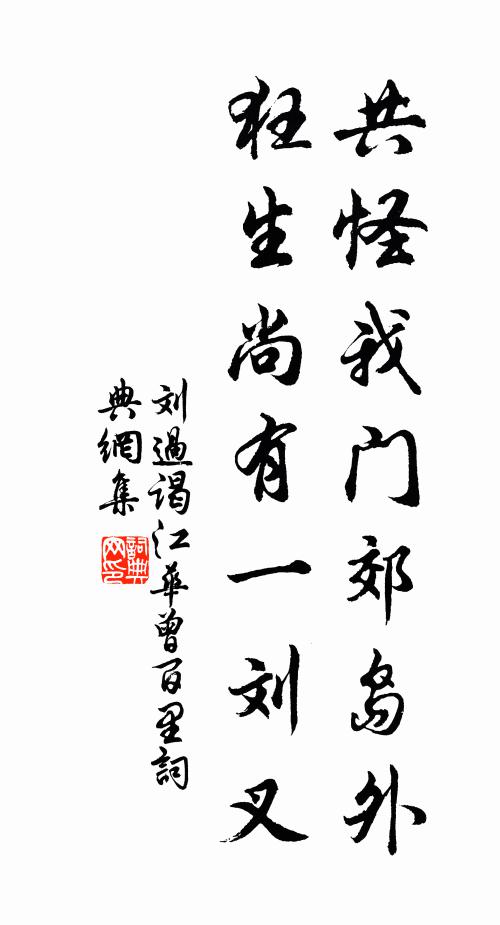 共怪我门郊岛外
狂生尚有一刘叉
刘過谒江華曾百里詞
典網集
詞典网印